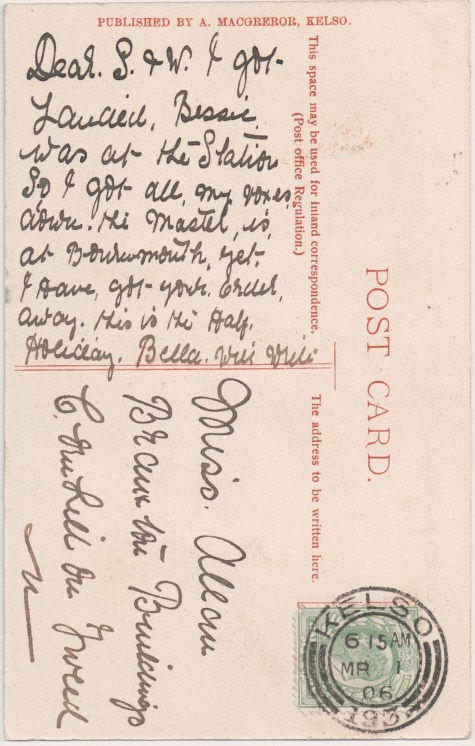 PUBLISHED BY A. MACGREROR, KELSO.
Dear. S. & W. I got
Landed, Bessie,
was at the Station
So I got all, my boxes,
down. the Master, is,
at Bournmouth, yet.
I have, got your. Order,
away. this is the Half.
Holiday. Bella. will
This space may be used for Inland correspondence.
(Post office Regulation.)
POST CARD.
The address to be written here.
Miss. Allan
Branxton Buildings
Cornhill on Tweed
N
KELSO
6 15 AM
MR 1
06
193